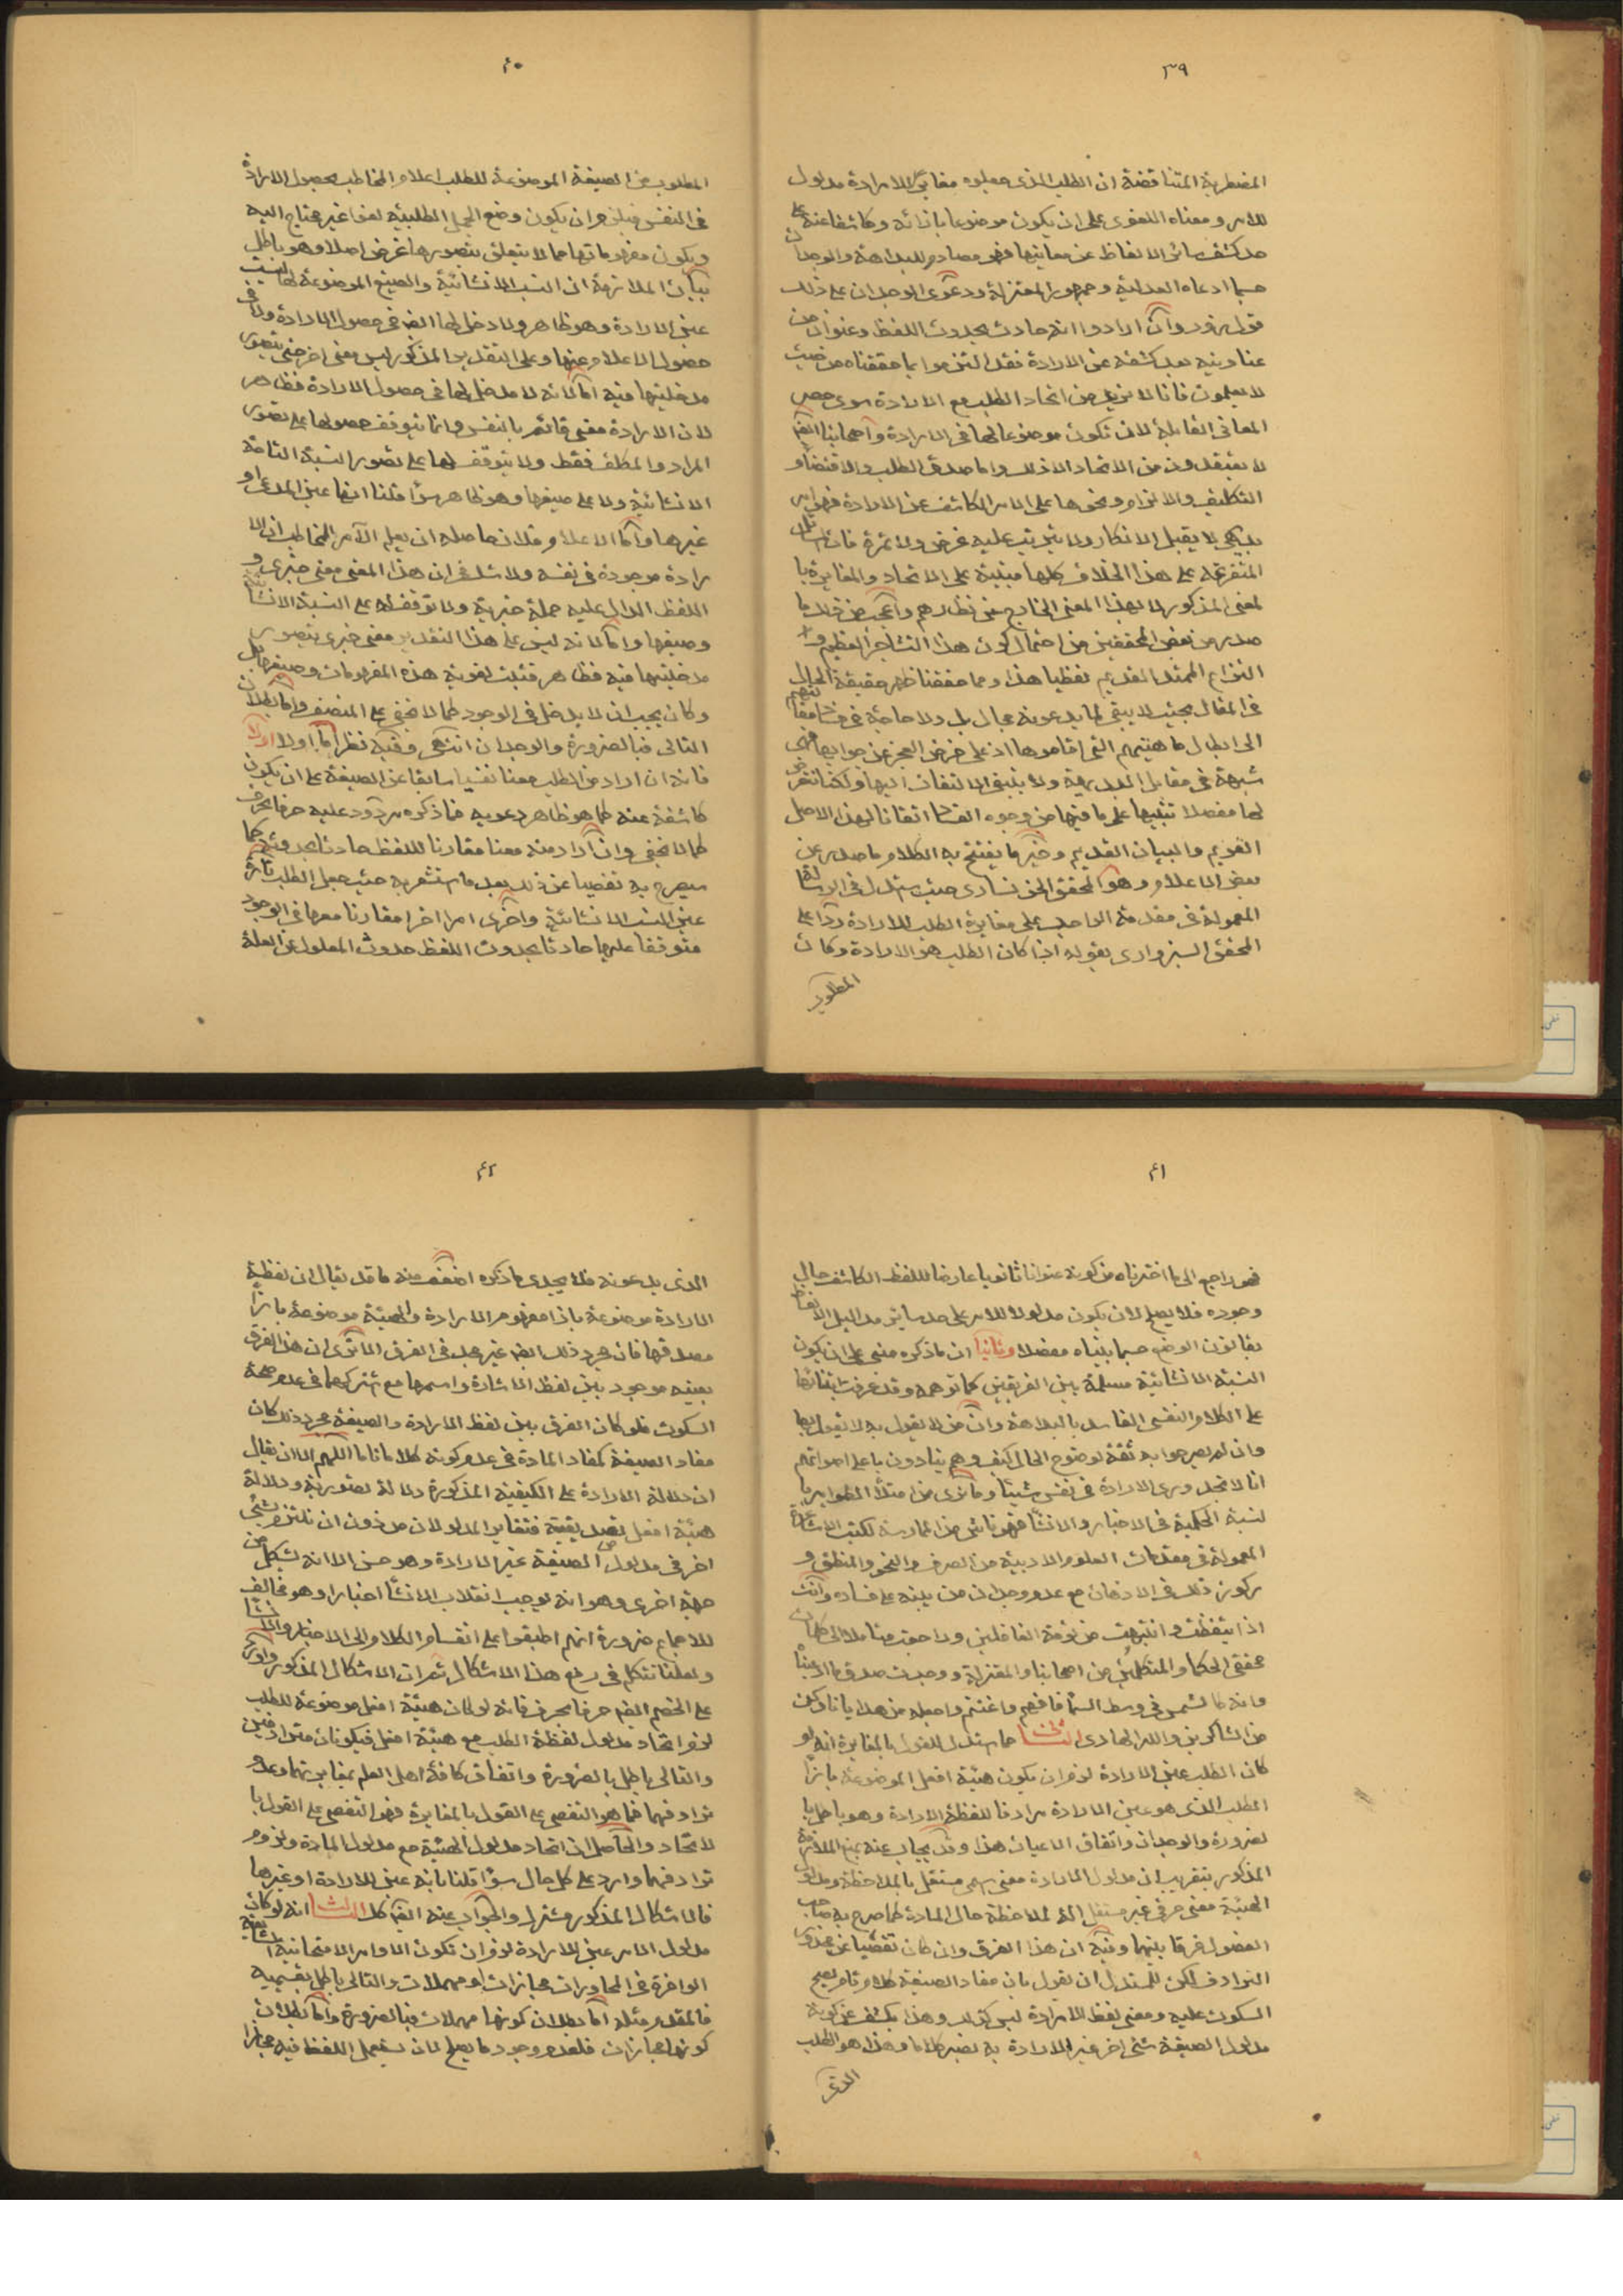 ٣٩
المضطربة المتناقضة ان الطلب الذى جعلوه مغايرا للارادة مدلول
للامر ومعناه اللغوى على ان يكون موضوعا بازائه وكاشفا عنه على
حد كشف سائر الالفاظ عن معانيها فهو مصادم للبداهة والوجدان
حسبما ادعاه العدلية وجمهور المعتزلة ودعوى الوجدان على ذلك
وان ارادوا انه حادث بحدوث اللفظ وعنوان من
عناوينه بعد كشفه عن الارادة فقد التزموا بما حققناه من حيث
لا يعلمون فانا لا نريد من اتحاد الطلب مع الارادة سوى حصر
المعانى القابلة لان تكون موضوعا لها فى الارادة واصحابنا ايضا
لا يعتقدون من الاتحاد الا ذلك واما صدق الطلب والاقتضاء و
التكليف والالزام ونحوها على الامر الكاشف عن الارادة فهو امر
بديهى لا يقبل الانكار ولا يترتب عليه غرض ولا ثمرة فان
المتفرعة على هذا الخلاف كلها مبتنية على الاتحاد والمغايرة با
لمعنى المذكور لا بهذا المعنى الخارج عن نظارهم واعجب من ذلك ما
صدر من بعض المحققين من احتمال كون هذا التشاجر العظيم و
النزاع الممتد القديم لفظيا هذا ومما حققنا ظهر حقيقة الحال
فى المقال بحيث لا يبقى لما يدعونه مجال بل ولا حاجة
الى ابطال ما هيتهم التى اقاموها اذ على فرض العجز عن جوابها فهى
شبهة فى مقابل البديهة ولا ينبغى الالتفات اليها ولكنا نتعرض
لها مفصلا تنبيها على ما فيها من وجوه الفساد اتقانا لهذا الاصل
القويم والبيان القديم وخير ما يفتتح به الكلام ما صدر عن
بعض الاعلام وهو المحقق الخونسارى حيث استدل فى الرسالة
المعمولة فى مقدمة الواجب على مغايرة الطلب للارادة ردا على
المحقق السبزوارى بقوله اذا كان الطلب هو الارادة وكان
المطلوب
٤٠
المطلوب من الصيغة الموضوعة للطلب اعلام المخاطب بحصول الارادة
فى النفس فيلزم ان يكون وضع الجمل الطلبية لغوا غير محتاج اليه
ويكون مفهوماتها مما لا يتعلق بتصورها غرض اصلا وهو باطل
بيان الملازمة ان النسب الانشائية والصيغ الموضوعة لها ليست
عين الارادة وهو ظاهر ولا دخل لها ايضا فى حصول الارادة ولا فى
حصول الاعلام عنها وعلى التقدير المذكور ليس معنى اخر حتى يتصور
مدخليتها فيه اما انه لا مدخل لها فى حصول الارادة فظاهر
لان الارادة معنى قائم بالنفس وانما يتوقف حصولها على تصور
المراد والمكلف فقط ولا يتوقف لها على تصور النسبة التامة
الانشائية ولا على صيغها وهو ظاهر سواء قلنا انها عين الداعى او
غيرها واما الاعلام فلان حاصله ان يعلم الآمر المخاطب ان الا
رادة موجودة فى نفسه ولا شك فى ان هذا المعنى معنى خبرى و
اللفظ الدال عليه جملة خبرية ولا توقف له على النسبة الانشائية
وصيغها واما انه ليس على هذا التقدير معنى خبرى يتصور
مدخليتها فيه فظاهر فثبت لغوية هذه المفهومات وصيغها بل
وكان يجب ان لا يدخل فى الوجود كما لا يخفى على المنصف واما بطلان
التالى فبالضرورة والوجدان انتهى وفيه نظر اما اولا
فانه ان اراد من الطلب معنا نفسيا سابقا عن الصيغة على ان يكون
كاشفة عنه كما هو ظاهر دعويه فما ذكره مردود عليه حرفا بحرف
كما لا يخفى وان اراد منه معنا مقارنا للفظ حادثا بحدوثه كما
سيصرح به تفصيا عن ذلك بعد ما استشعر به حيث جعل الطلب تارة
عين النسب الانشائية واخرى امرا اخرا مقارنا معها فى الوجود
متوقفا عليها حادثا بحدوث اللفظ حدوث المعلول عن العلة
٤١
فهو راجع الى ما اخترناه من كونه عنوانا ثانويا عارضا للفظ الكاشف حال
وجوده فلا يصلح لان يكون مدلولا للامر على حد سائر مداليل الالفاظ
بقانون الوضع حسبما بيناه مفصلا وثانيا ان ما ذكره مبنى على ان يكون
النسبة الانشائية مسلمة بين الفريقين كما توهمه وقد عرفت ابتنائها
على الكلام النفسى الفاسد بالبداهة وان من لا يقول به لا يقول بها
وان لم يصرحوا به ثقة لوضوح الحال كيف وهم ينادون باعلى اصواتهم
انا لا نجد وراء الارادة فى نفس شيئا وما ترى من امتلاء الطوامير با
لنسبة الحكمية فى الاخبار والانشاء فهو ناش من الممارسة لكتب الاشاعرة
المعمولة فى مقدمات العلوم الادبية من الصرف والنحو والمنطق و
ركوز ذلك فى الاذهان مع عدم وجدان من ينبه على فساده وانت
اذا تيقظت وانتبهت من نومة الغافلين وراجعت متاملا الى كلمات
محققى الحكماء والمتكلمين من اصحابنا والمعتزلة ووجدت صدق ما ادعينا
وانه كالشمس فى وسط السماء فافهم واغتنم واجعله من هدايانا وكن
من الشاكرين والله الهادى الثانى مما استدل للقول بالمغايرة انه لو
كان الطلب عين الارادة لزم ان يكون هيئة افعل الموضوعة بازاء
الطلب الذى هو عين الارادة مرادفا للفظة الارادة وهو باطل با
لضرورة والوجدان واتفاق الاعيان هذا وقد يجاب عنه بمنع الملازمة
المذكور بتقريب ان مدلول المادة معنى اسمى مستقل بالملاحظة ومدلول
الهيئة معنى حرفى غير مستقل الة لملاحظة حال المادة كما صرح به صاحب
الفصول فرقا بينهما وفيه ان هذا الفرق وان كان تفصيا عن محذور
الترادف لكن للمستدل ان يقول بان مفاد الصيغة كلام تام يصح
السكوت عليه ومعنى لفظ الارادة ليس كذلك وهذا يكشف عن كون
مدلول الصيغة شئ اخر غير الارادة به تصير كلاما وهذا هو الطلب
الذى
٤٢
الذى يدعونه فلا يجدى ما ذكره اضعف منه ما قد يقال ان لفظة
الارادة موضوعة بازاء مفهوم الارادة والهيئة موضوعة بازاء
مصداقها فان مجرد ذلك ايضا غير مجد فى الفرق الا ترى ان هذا الفرق
بعينه موجود بين لفظ الاشارة واسمها مع اشتراكهما فى عدم صحة
السكوت فلو كان الفرق بين لفظ الارادة والصيغة مجرد ذلك كان
مفاد الصيغة كمفاد المادة فى عدم كونه كلاما تاما اللهم الا ان يقال
ان دلالة الارادة على الكيفية المذكورة دلالة تصورية ودلالة
هيئة افعل تصديقية فتغاير المدلولان من دون ان نلتزم بشئ
اخر فى مدلول الصيغة غير الارادة وهو حسن الا انه يشكل من
جهة اخرى وهو انه يوجب انقلاب الانشاء اخبارا وهو مخالف
للاجماع ضرورة انهم اطبقوا على انقسام الكلام الى الاخبار والانشاء
ولعلنا نتكلم فى رفع هذا الاشكال ثم ان الاشكال المذكور وارد
على الخصم ايضا حرفا بحرف فانه لو كان هيئة افعل موضوعة للطلب
لزم اتحاد مدلول لفظة الطلب مع هيئة افعل فيكونان مترادفين
والتالى باطل بالضرورة واتفاق كافة اهل العلم بمغايرتهما وعدم
ترادفهما فما هو التفصى على القول بالمغايرة فهو التفصى على القول با
لاتحاد والحاصل ان اتحاد مدلول الهيئة مع مدلول المادة ولزوم
ترادفهما وارد على كل حال سواء قلنا بانه عين الارادة او غيرها
فالاشكال المذكور مشترك والجواب عنه ايضا كك الثالث انه لو كان
مدلول الامر عين الارادة لزم ان تكون الاوامر الامتحانية
الوافرة فى المحاورات مجازات او مهملات والتالى باطل بقسميه
فالمقدم مثله اما بطلان كونها مهملات فبالضرورة واما بطلان
كونها مجازات فلعدم وجود ما يصلح لان يستعمل اللفظ فيه مجازا